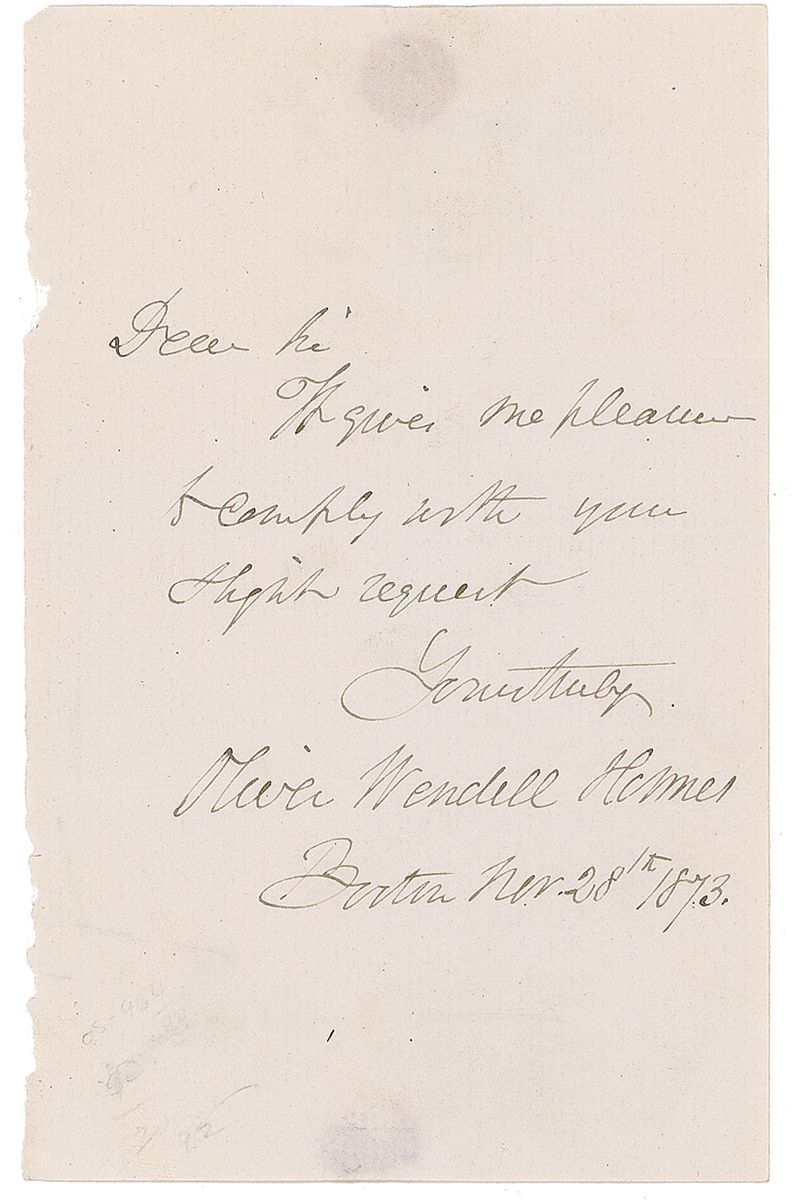 Dear Sir
It gives me pleasure
to comply with your
slight request
Yours truly
Oliver Wendell Holmes
Boston Nov. 28th 1873.